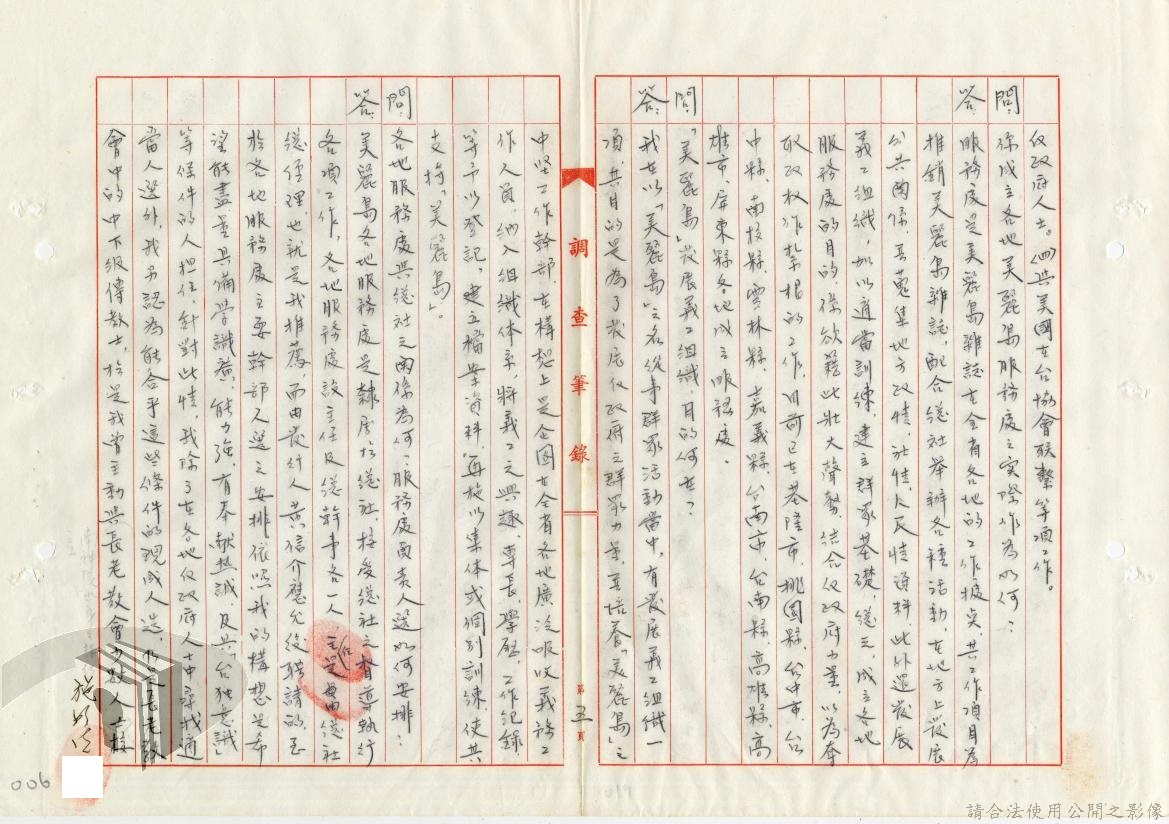 仅政府人士。㈣與美國在台協會联繫等項工作。
問：你成立各地美麗島服務處之实際作為如何？
答：服務處是美麗島雜誌在全省各地的工作據点，其工作項目為
推銷美麗島雜誌，配合總社举辦各種活動，在地方上發展
公共関係，並蒐集地方政情、社情、人民情資料，此外還發展
義工組織，加以適當訓練，建立群眾基礎，總之，成立各地
服務處的目的，係欲藉此壯大聲勢，結合仅政府力量，以為奪
取政权作紮根的工作，目前已在基隆市、桃園縣、台中市、台
中縣、南投縣、雲林縣、嘉義縣、台南市、台南縣、高雄縣、高
雄市、屏東縣各地成立服務處。
問：「美麗島」發展義工組織，目的何在？
答：我在以「美麗島」之名從事群眾活動當中，有發展義工組織一
項，其目的是為了發展仅政府之群眾力量，並培養「美麗島」之
調查筆錄
第五頁
中坚工作幹部，在構想上是企圖在全省各地廣泛吸收義務工
作人員，納入組織体系，將義工之興趣、專長、學歷、工作紀錄
等予以登記，建立檔案資料，再施以集体或個別訓練，使其
支持「美麗島」。
問：各地服務處與總社之関係為何？服務處負責人選如何安排？
答：美麗島各地服務處是隸屬於總社，接受總社之督導執行
各項工作，各地服務處設主任及總幹事各一人，主任是由總社
總經理，也就是我推薦而由發行人黃信介應允後聘請的，至
於各地服務處主要幹部人選之安排，依照我的構想是希
望能盡量具備學識廣、能力強、有奉献熱誠，及具「台独意識」
等條件的人担任，針對此情，我除了在各地仅政府人士中尋找適
當人選外，我另認為能合乎這些條件的現成人選，
會中的中下級傳教士，於是我曾主動與長老教會
施明德
006
請合法使用公開之影像